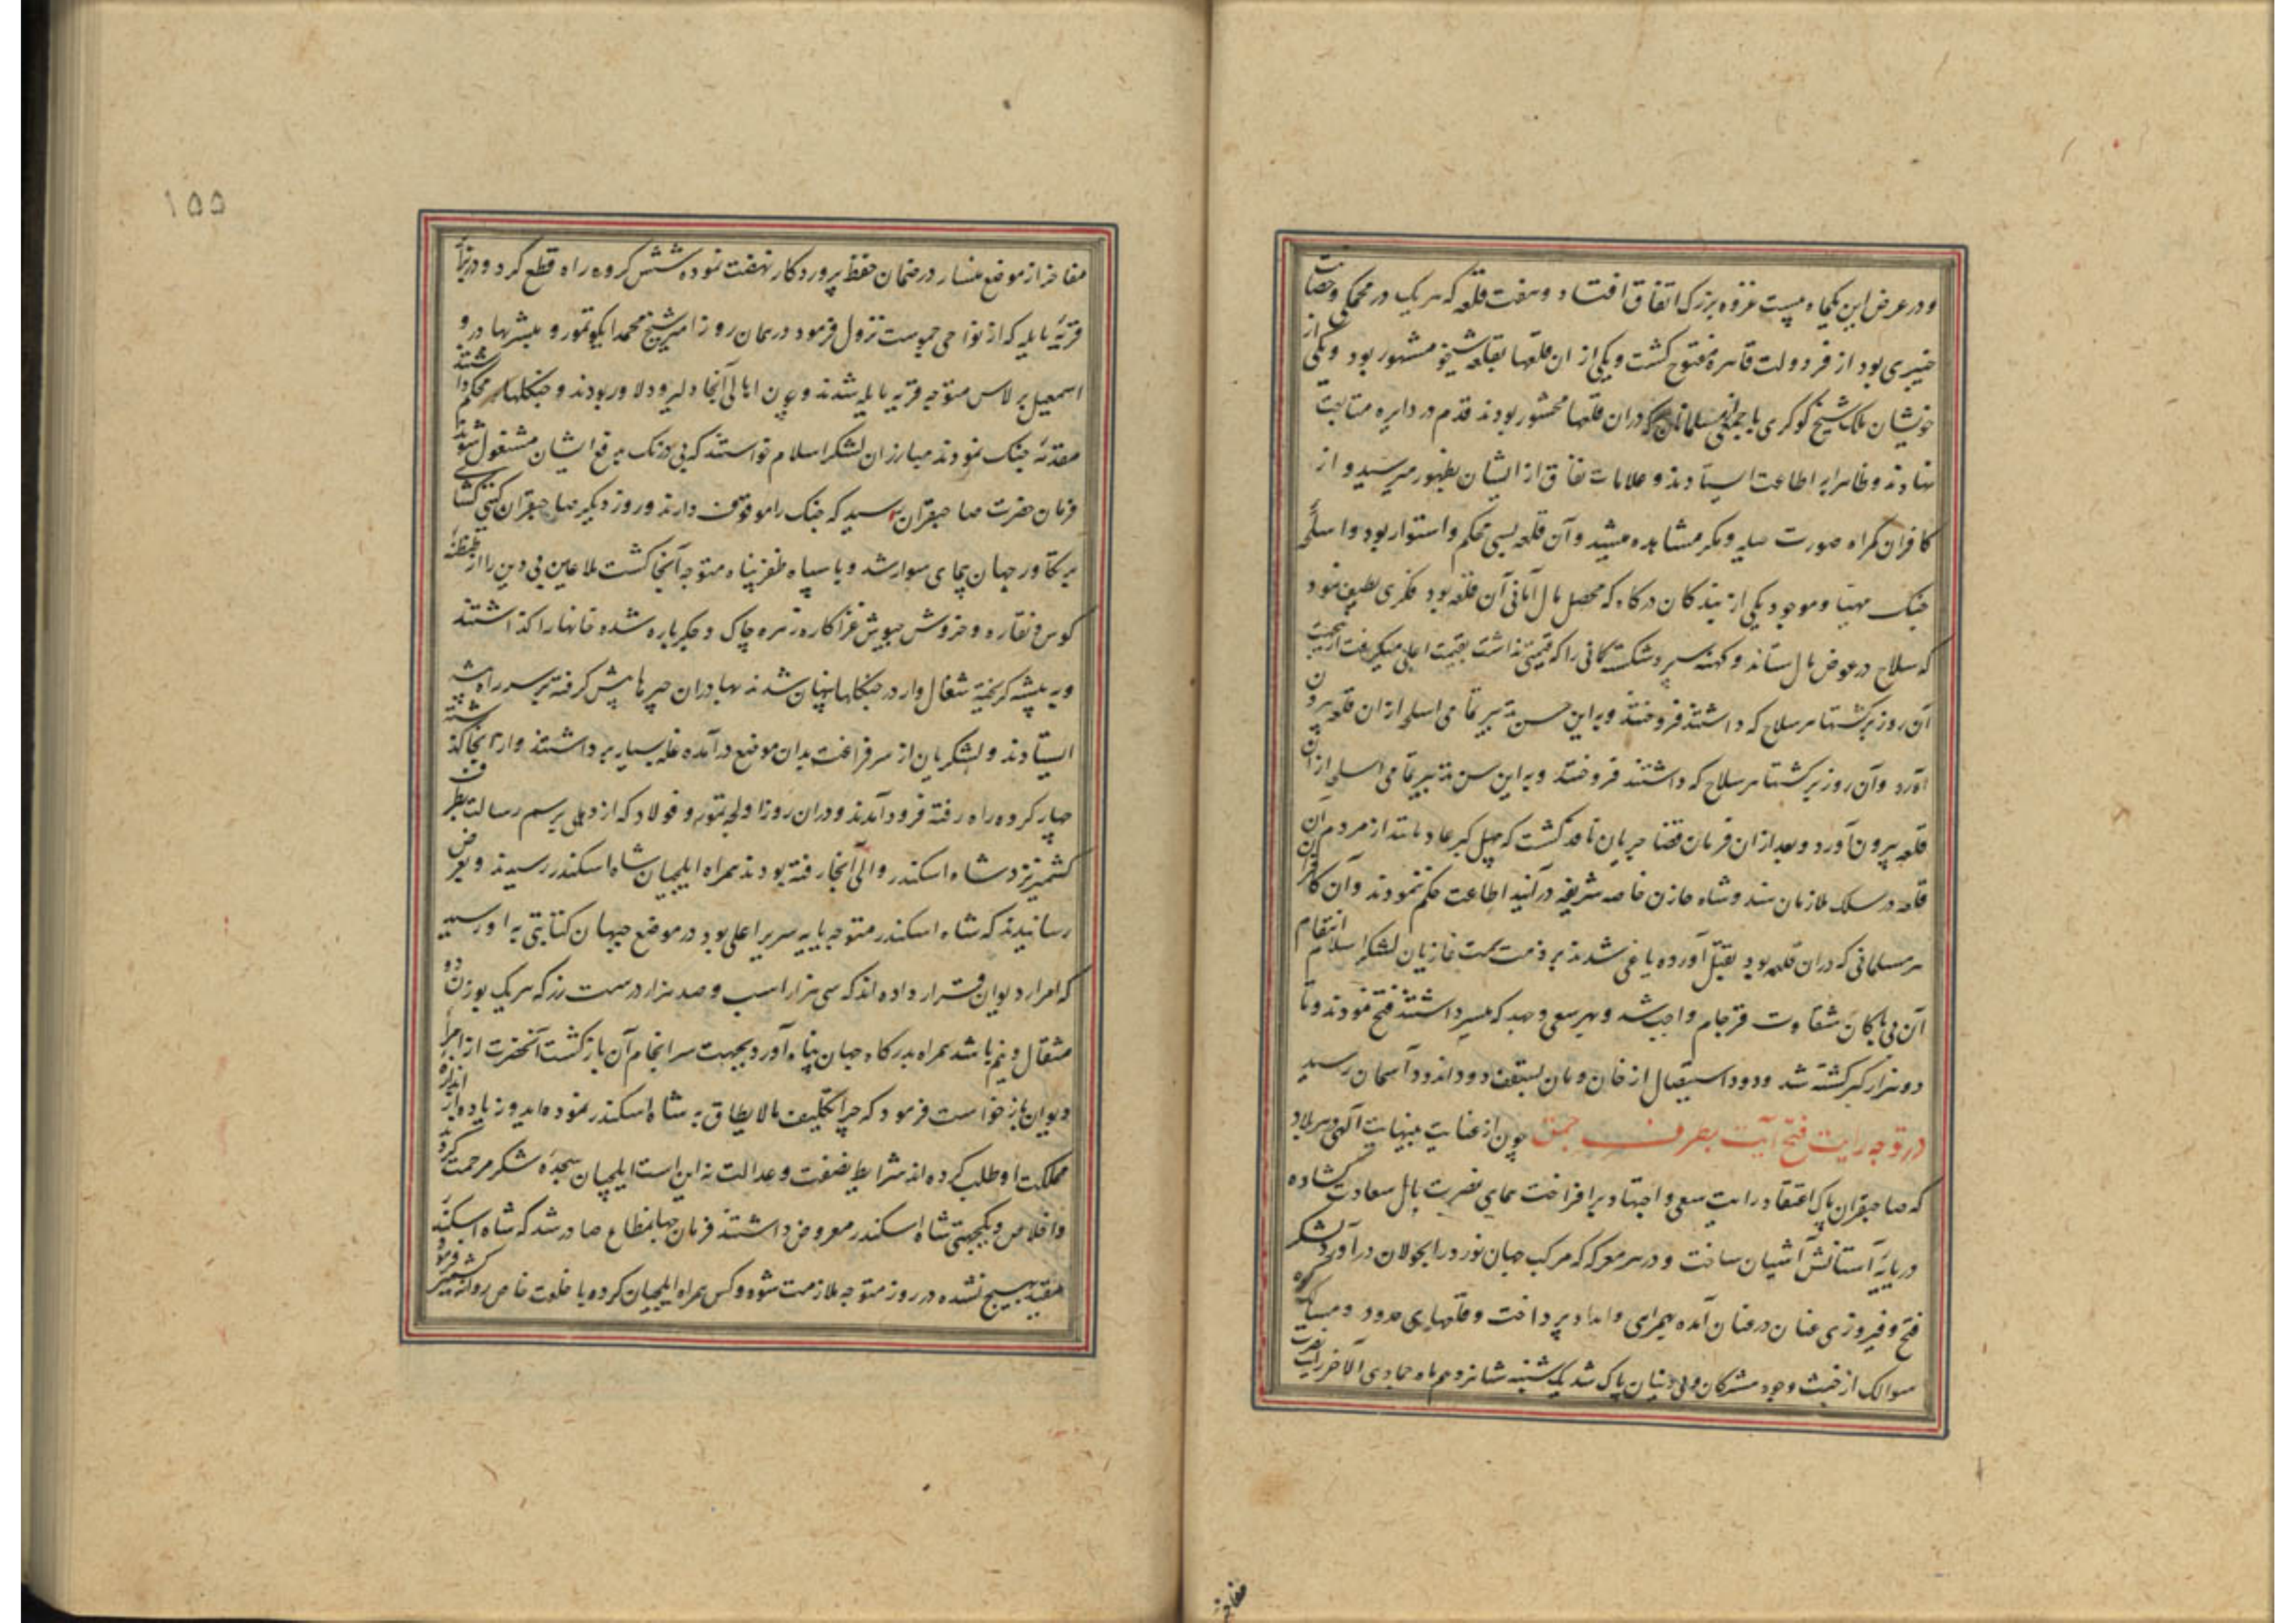 و در عرض این یکماه بیست غزوه بزرک اتفاق افتاد و هفت قلعه که هر یک در محکمی و حصانت
خیبری بود از فر دولت قاهره مفتوح کشت و یکی از ان قلعها بقلعه شیخو مشهور بود و یکی از
خویشان ملک شیخ کوکری با جمعی مسلمانان که دران قلعها محشور بودند قدم در دایره متابعت
نهادند و ظاهرا به اطاعت ایستادند و علامات نفاق از ایشان بظهور میرسید و از
کافران کمراه صورت حیله و مکر مشاهده میشد و آن قلعه بسی محکم و استوار بود و اسلحه
جنک مهیا و موجود یکی از بندکان درکاه که محصل مال امانی آن قلعه بود فکری لطیف نمود
که سلاح در عوض مال ستاند و کهنه سپر و شکسته کمانی را که قیمتی نداشت بقیمت اعلی میکرفت ازین جهت
آن روز برکشتها هر سلاح که داشتند فروختند و به این حسن تدبیر تمامی اسلحه از ان قلعه برون
آورد و آن روز برکشتها هر سلاح که داشتند فروختند و به این حسن تدبیر تمامی اسلحه از ان
قلعه بیرون آورد و بعد از ان فرمان قضا جریان نافذ کشت که چهل کبر عاد مانند از مردم آن
قلعه در سلک ملازمان هندو شاه خازن خاصه شریفه در آیند اطاعت حکم ننمودند و آن کافران
هر مسلمانی که دران قلعه بود بقتل آورده یاغی شدند بر ذمت همت غازیان لشکر اسلام انتقام
آن بی باکان شقاوت فرجام واجب شد و بهر سعی و جهد که میسر داشتند فتح نمودند و تا
دو هزار کبر کشته شد و دود استیصال از خان و مان بسقف دود اندود آسمان رسید
در توجه رایت فتح آیت بطرف جمو چون از عنایت بینهایت الهی در هر بلاد
که صاحبقران پاک اعتقاد رایت سعی و اجتهاد برافراخت همای نصرت بال سعادت کشاده
در پایه آستانش آشیان ساخت و در هر معرکه که مرکب جهان نورد را بجولان در آورد لشکر
فتح و فیروزی عنان در عنان آمده بهمراهی و امداد پرداخت و قلعهای حدود و مسالک کوه
سوالک از خبث وجود مشرکان و بی دینان پاک شد یکشنبه شانزدهم ماه جمادی الاخر رایت نصرت
مفاخر
۱۵۵
مفاخر از موضع منسار در ضمان حفظ پروردکار نهضت نموده شش کروه راه قطع کرد و در نواحی
قریه بایله که از نواحی جموست نزول فرمود در همان روز امیر شیخ محمد ایکوتمور و مبشر بهادر و
اسمعیل برلاس متوجه قریه بایله شدند و چون اهالی آنجا دلیر و دلاور بودند و جنکلها محکم داشتند
مقدمه جنک نمودند مبارزان لشکر اسلام خواستند که بی درنک بدفع ایشان مشغول شوند
فرمان حضرت صاحبقران رسید که جنک را موقوف دارند و روز دیکر صاحبقران کیتی کشای
بر تکاور جهان پیمای سوار شد و با سپاه ظفر پناه متوجه آنجا کشت ملاعین بی دین را از طنطنه
کوس و نقاره و خروش جیوش غزا کاره زهره چاک و جکر پاره شده خانها را کذاشتند
و به بیشه کریخته شغال وار در جنکلها پنهان شدند بهادران چپرها پیش کرفته بر سر راه بیشه
ایستادند و لشکریان از سر فراغت بدان موضع در آمده غله بسیار برداشتند و از آنجا کذشته
چهار کروه راه رفته فرود آمدند و دران روز اولجه تمور و فولاد که از دهلی برسم رسالت بطرف
کشمیر نزد شاه اسکندر والی آنجا رفته بودند همراه ایلچیان شاه اسکندر رسیدند و بعرض
رسانیدند که شاه اسکندر متوجه پایه سریر اعلی بود در موضع جبهان کتابتی به او رسید
که امراء دیوان قرار داده اند که سی هزار اسب و صد هزار درست زر که هر یک بوزن دو
مثقال و نیم باشد همراه بدرکاه جهان پناه آورد بجهت سرانجام آن بازکشت آنحضرت از امراء
دیوان بازخواست فرمود که چرا تکلیف مالایطاق به شاه اسکندر نموده اید و زیاده از اندازه
مملکت او طلب کرده اند شرایط نصفت و عدالت نه این است ایلچیان سجده شکر مرحمت کردند
و اخلاص و یکجهتی شاه اسکندر معروض داشتند فرمان جهانمطاع صادر شد که شاه اسکندر
مقید بهیچ نشده در روز متوجه ملازمت شود و کس همراه ایلچیان کرده با خلعت خاص روانه کشمیر فرمود